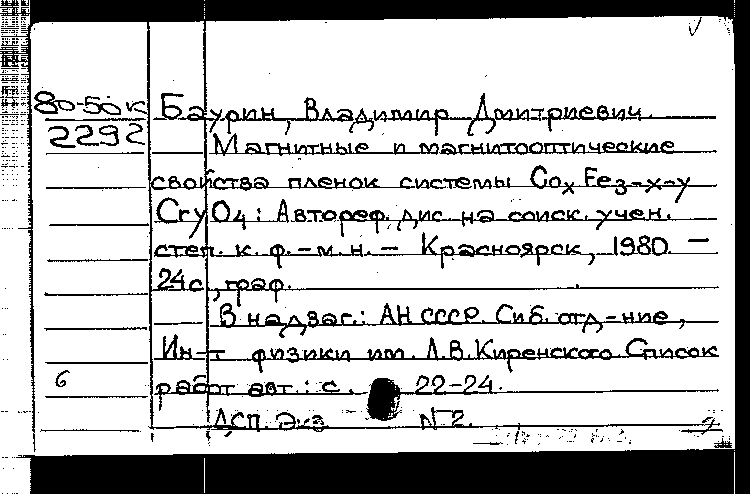 80-50к Баурин, Владимир Дмитриевич.
2292 Магнитные и магнитооптические
свойства пленок системы CoxFe3-x-y
CryO4: Автореф. дис. на соиск. учен.
степ. к. ф.-м.н. - Красноярск, 1980. -
24с., граф.
В надзаг.: АН СССР. Сиб. отд-ние,
Ин-т физики им. Л.В.Киренского Список
6 работ авт.: с. 22-24.
ДСП. Экз. N 2.